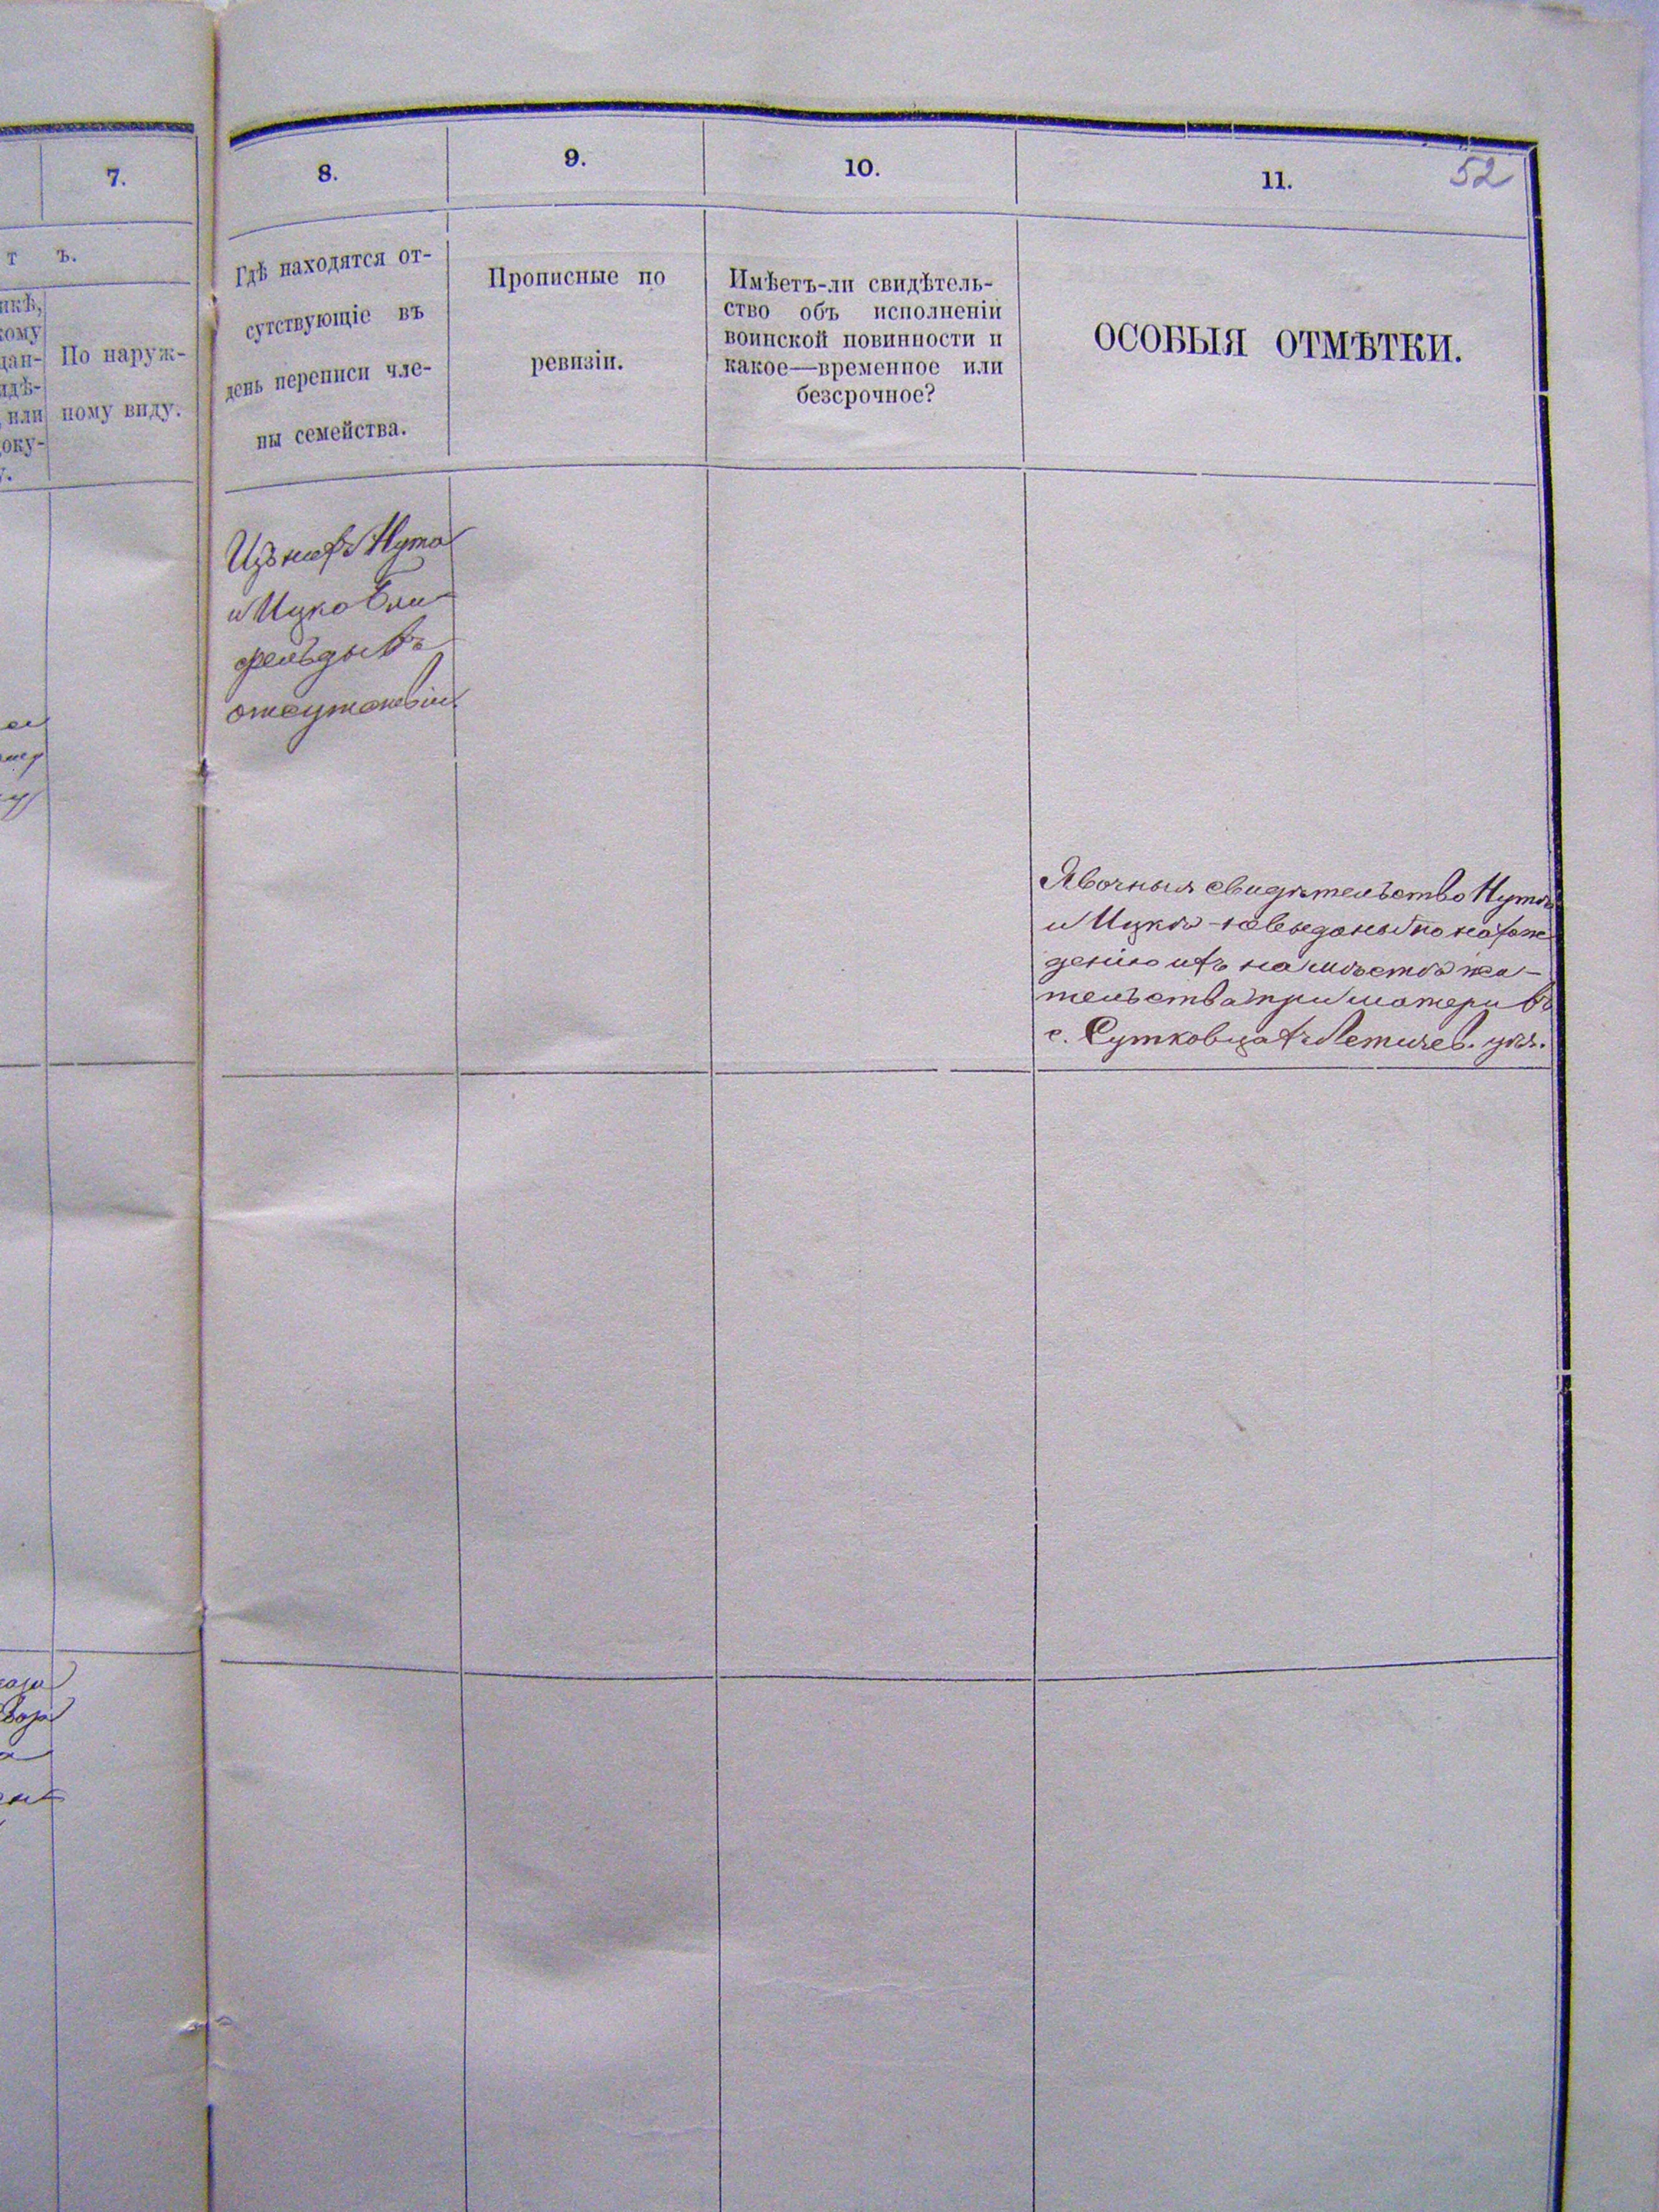 7.
8.
9.
10.
11.
52
т ъ.
По наруж-
ному виду.
Гдѣ находятся от-
сутствующіе въ
день переписи чле-
ны семейства.
Прописные по
ревизіи.
Имѣетъ-ли свидѣтель-
ство объ исполненіи
воинской повинности и
какое—временное или
безсрочное?
ОСОБЫЯ ОТМѢТКИ.
Изъ нихъ Нута
и Ицко Бли-
фельды въ
отсутствіи.
Явочныя свидѣтельство Нутѣ
и Ицкѣ выданы по нахож
денію ихъ на мѣстѣ жи-
тельства при матери въ
с. Сутковцахъ Летичев. уѣз.